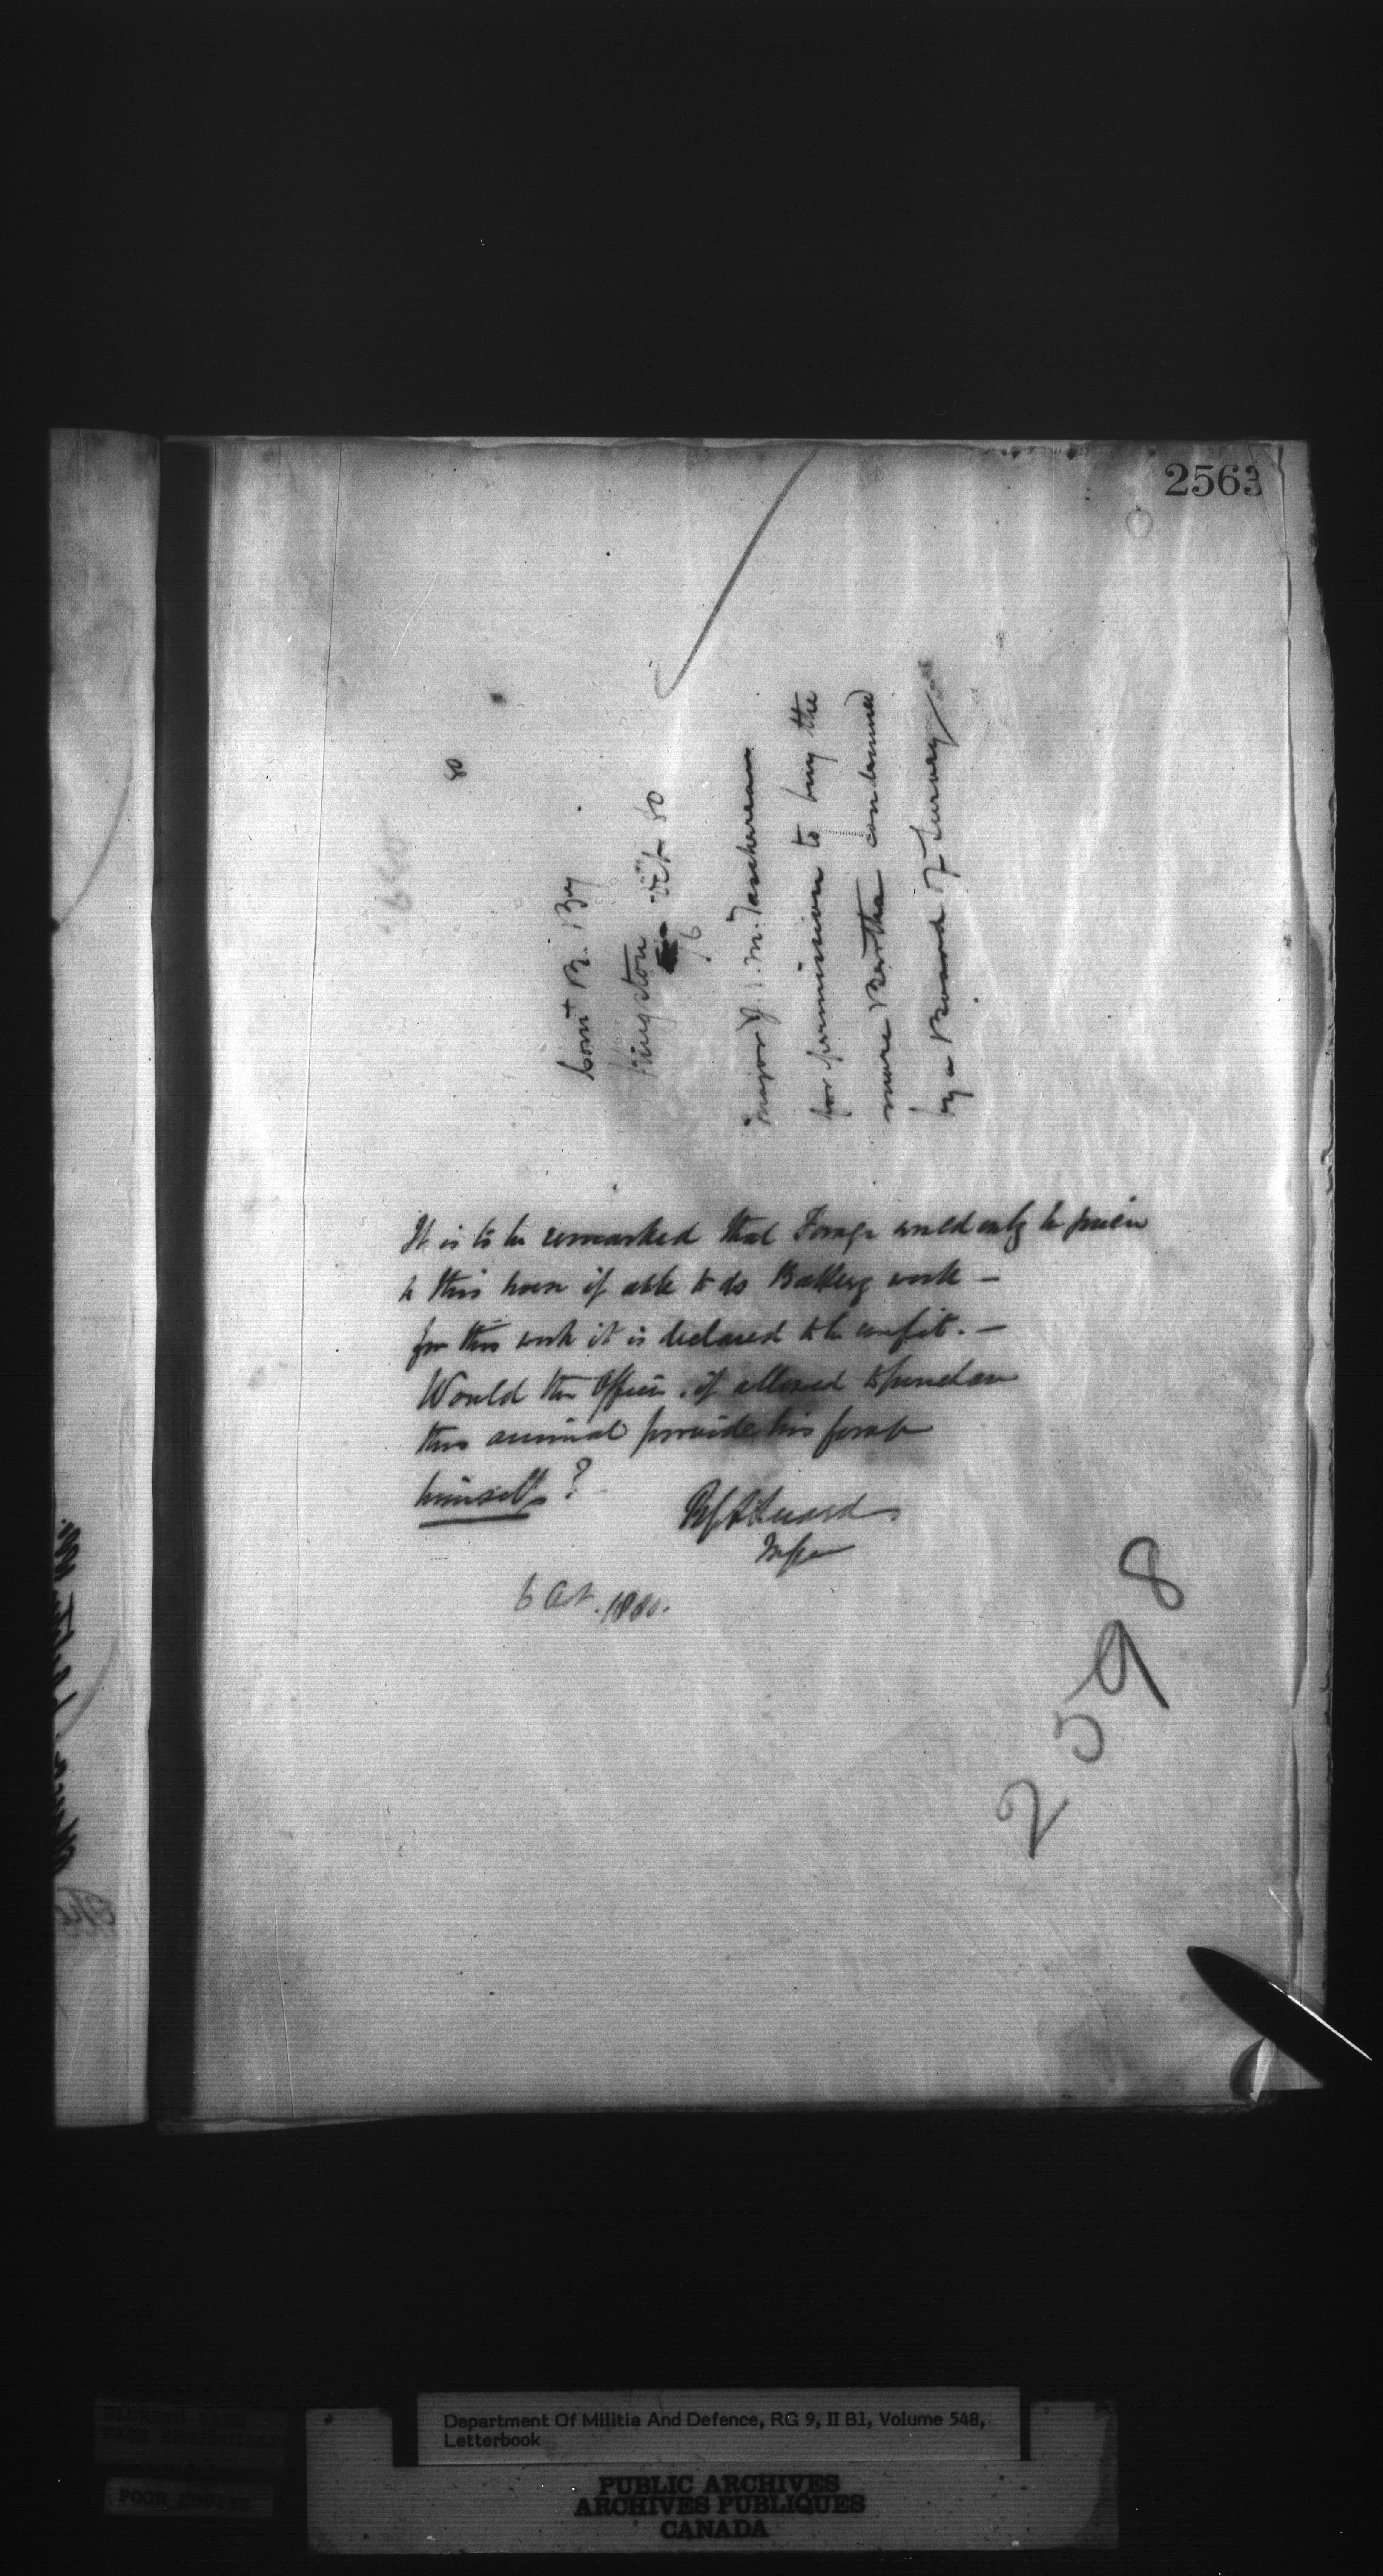 2563
80
Com<sup>t</sup> B. By
Kingston
6 Oct 80
Major J. M. Taschereau
for permission to buy the
mare Bertha condemned
by a Board of Survey
It is to be remarked that Forage would only be given
to this horse if able to do Battery work —
for this work it is declared to be unfit. —
Would the Officer, if allowed to purchase
this animal provide his forage
himself?
6 Oct. 1880.
2598
Department Of Militia And Defence, RG 9, II B1, Volume 548,
Letterbook
BLURRED PAGE
POOR COPIES
PUBLIC ARCHIVES
ARCHIVES PUBLIQUES
CANADA